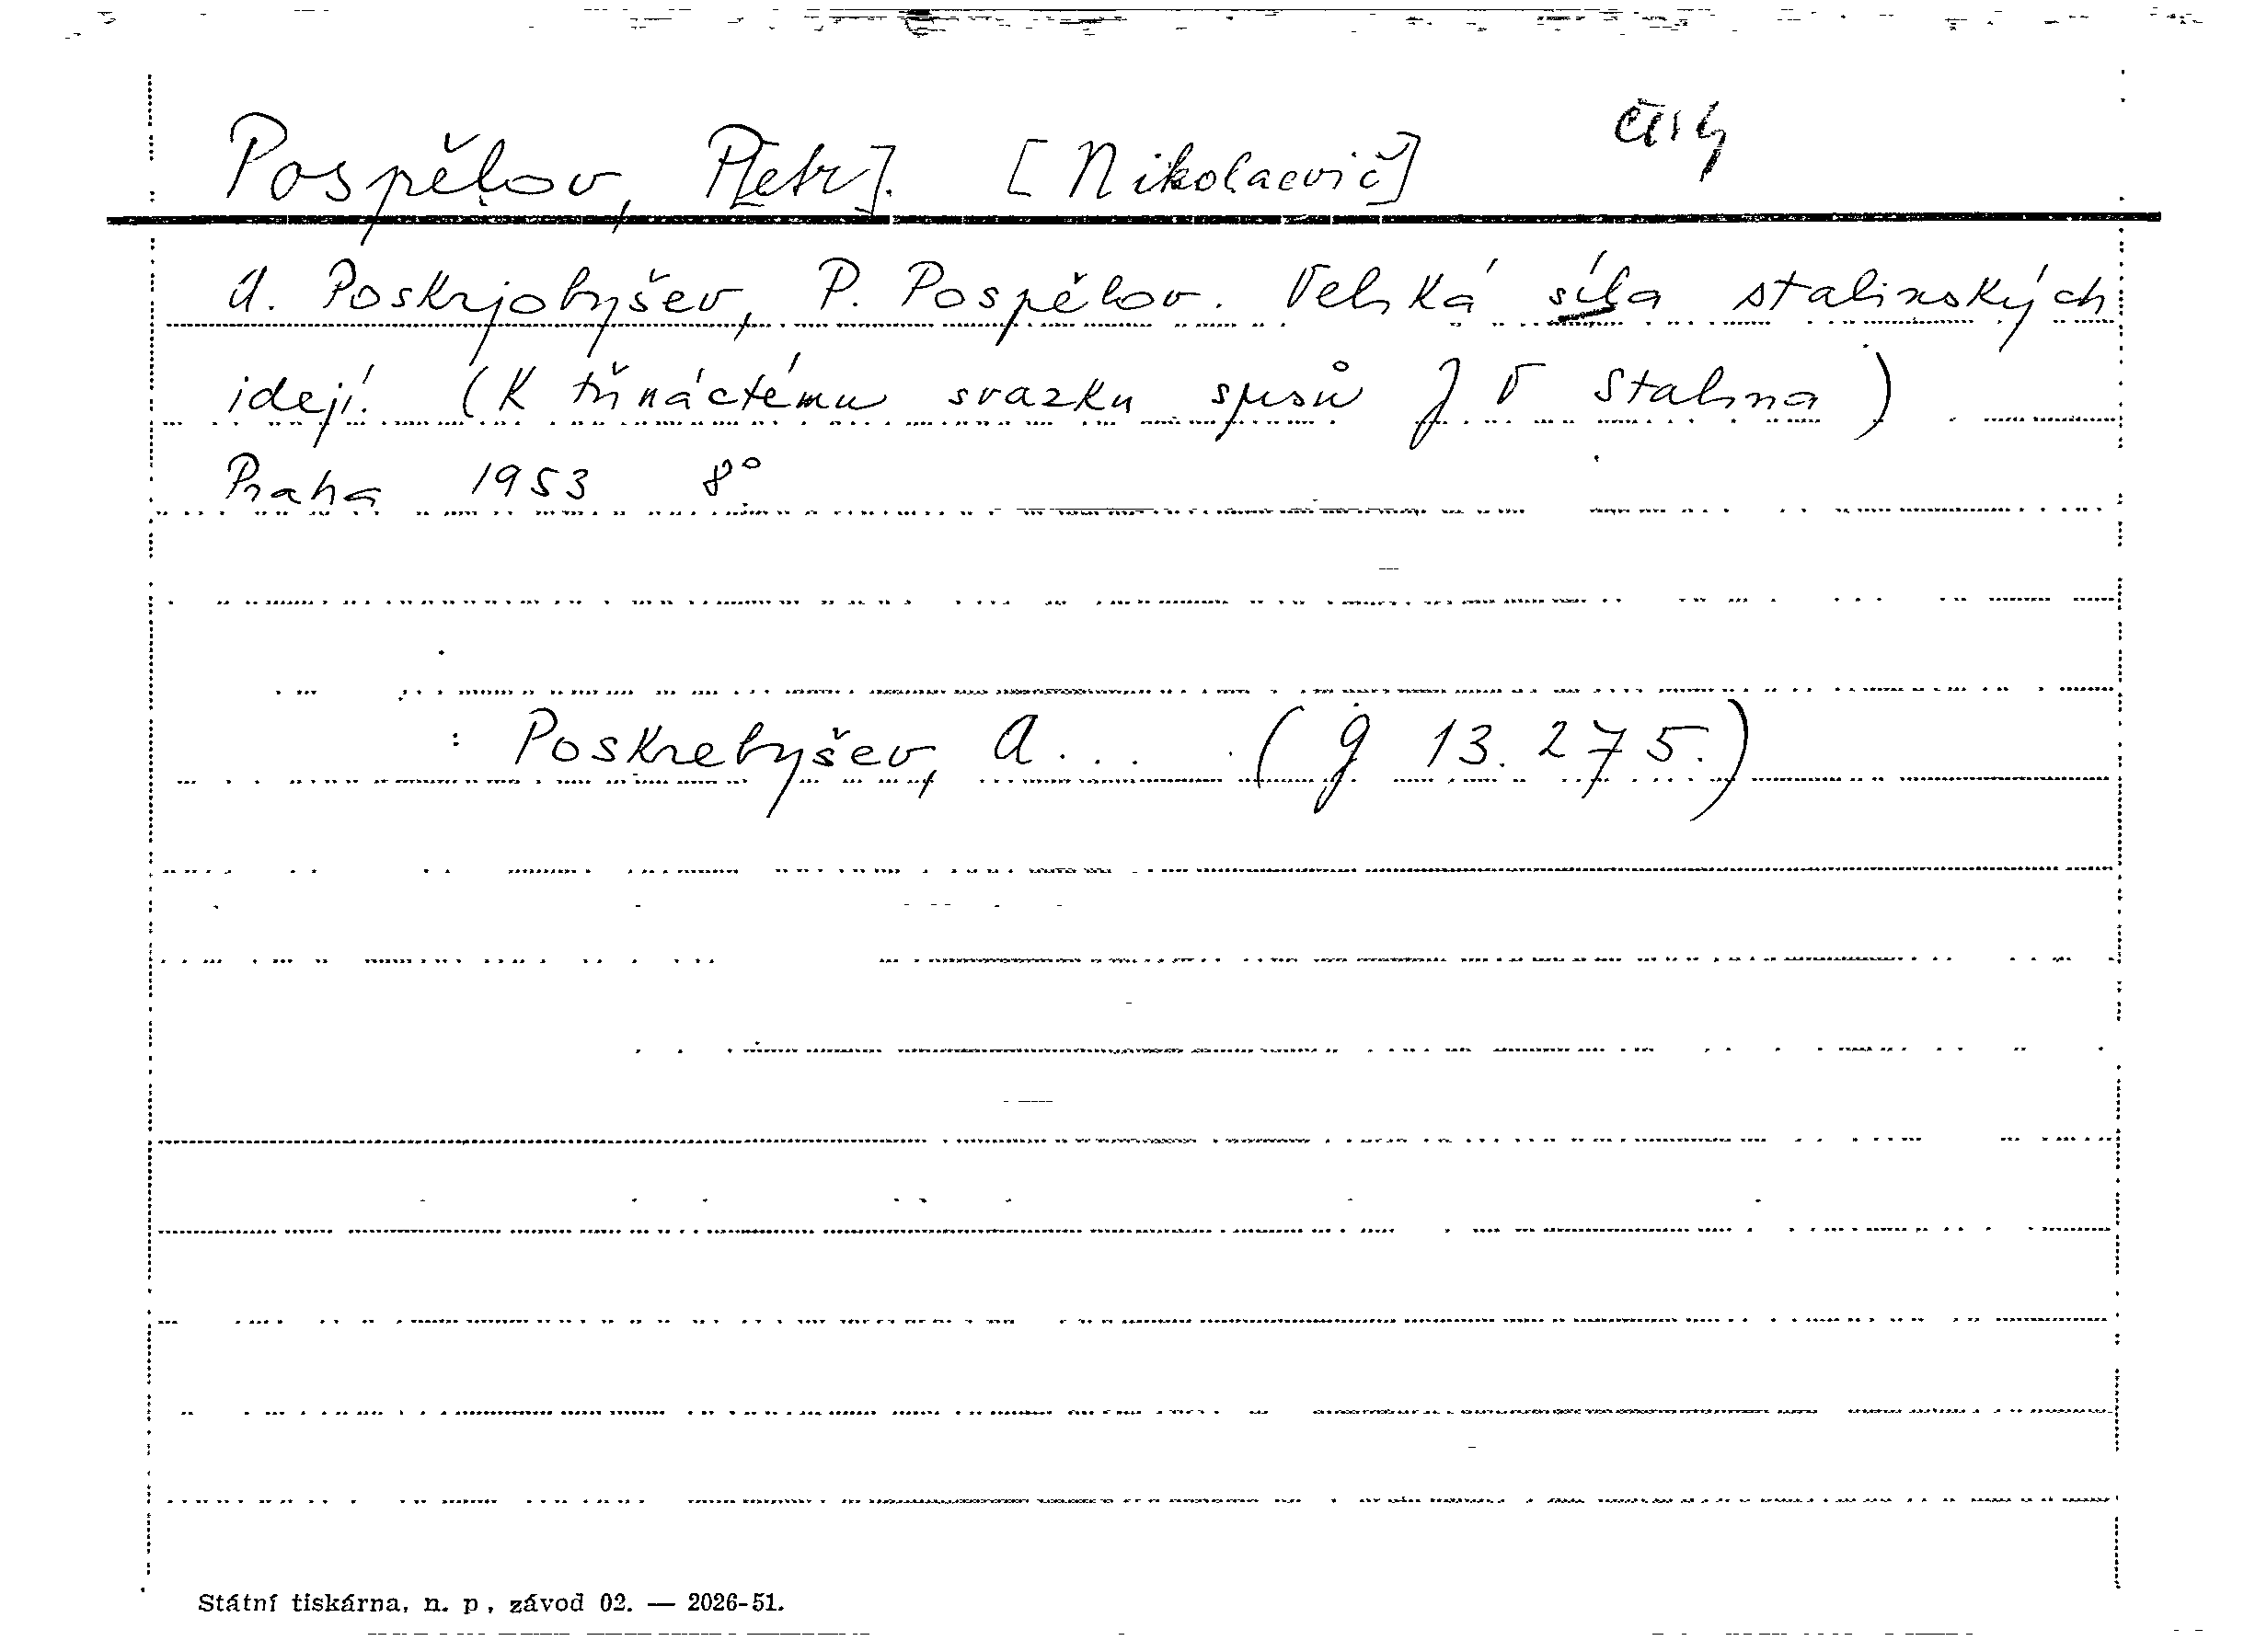 Pospělov, P[etr]. [Nikolaevič] česky
A. Poskrjobyšev, P. Pospělov. Velká síla stalinských
idejí. (K třináctému svazku spisů J V Stalina)
Praha 1953 8°
: Poskrebyšev, A... (g 13.275.)
Státní tiskárna, n. p, závod 02. — 2026-51.